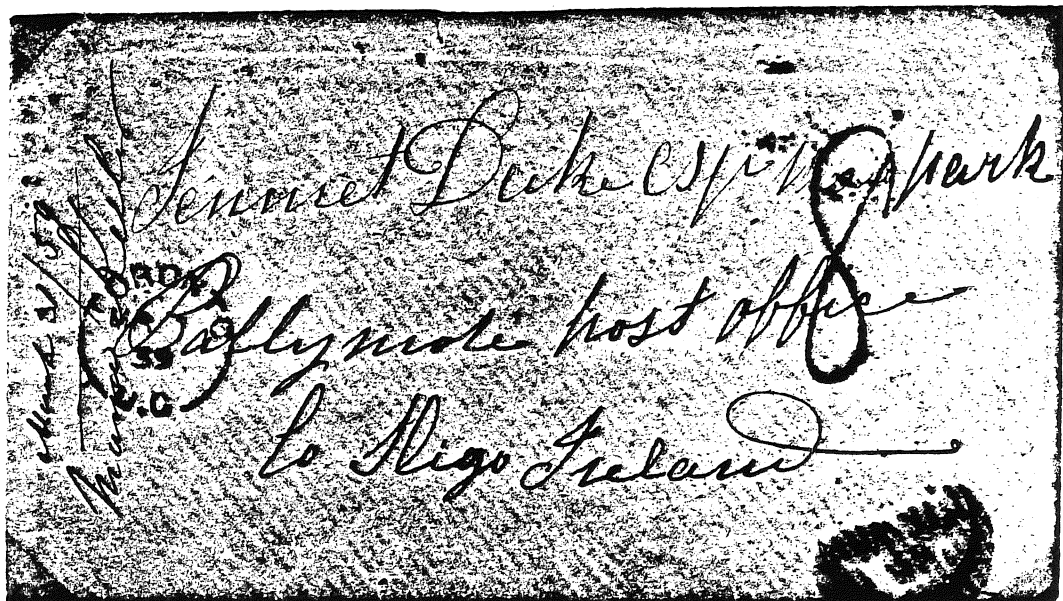 Jemmet Duke esq new park
Ballymote post office
Co Sligo Ireland
8
March 31/59
U.C.